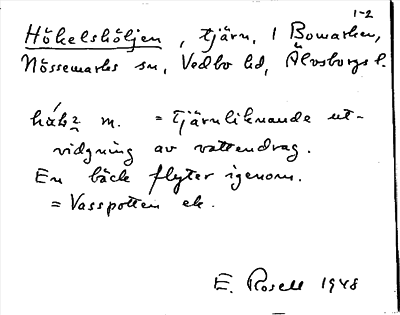 1-2
Hökelshöljen, tjärn, i Bowarken,
Nössemarks sn, Vedbo hd, Älvsborgs l.
m. = tjärnliknande ut-
vidgning av vattendrag.
En bäck flyter igenom.
= Vasspotten ek.
E. Rosell 1948